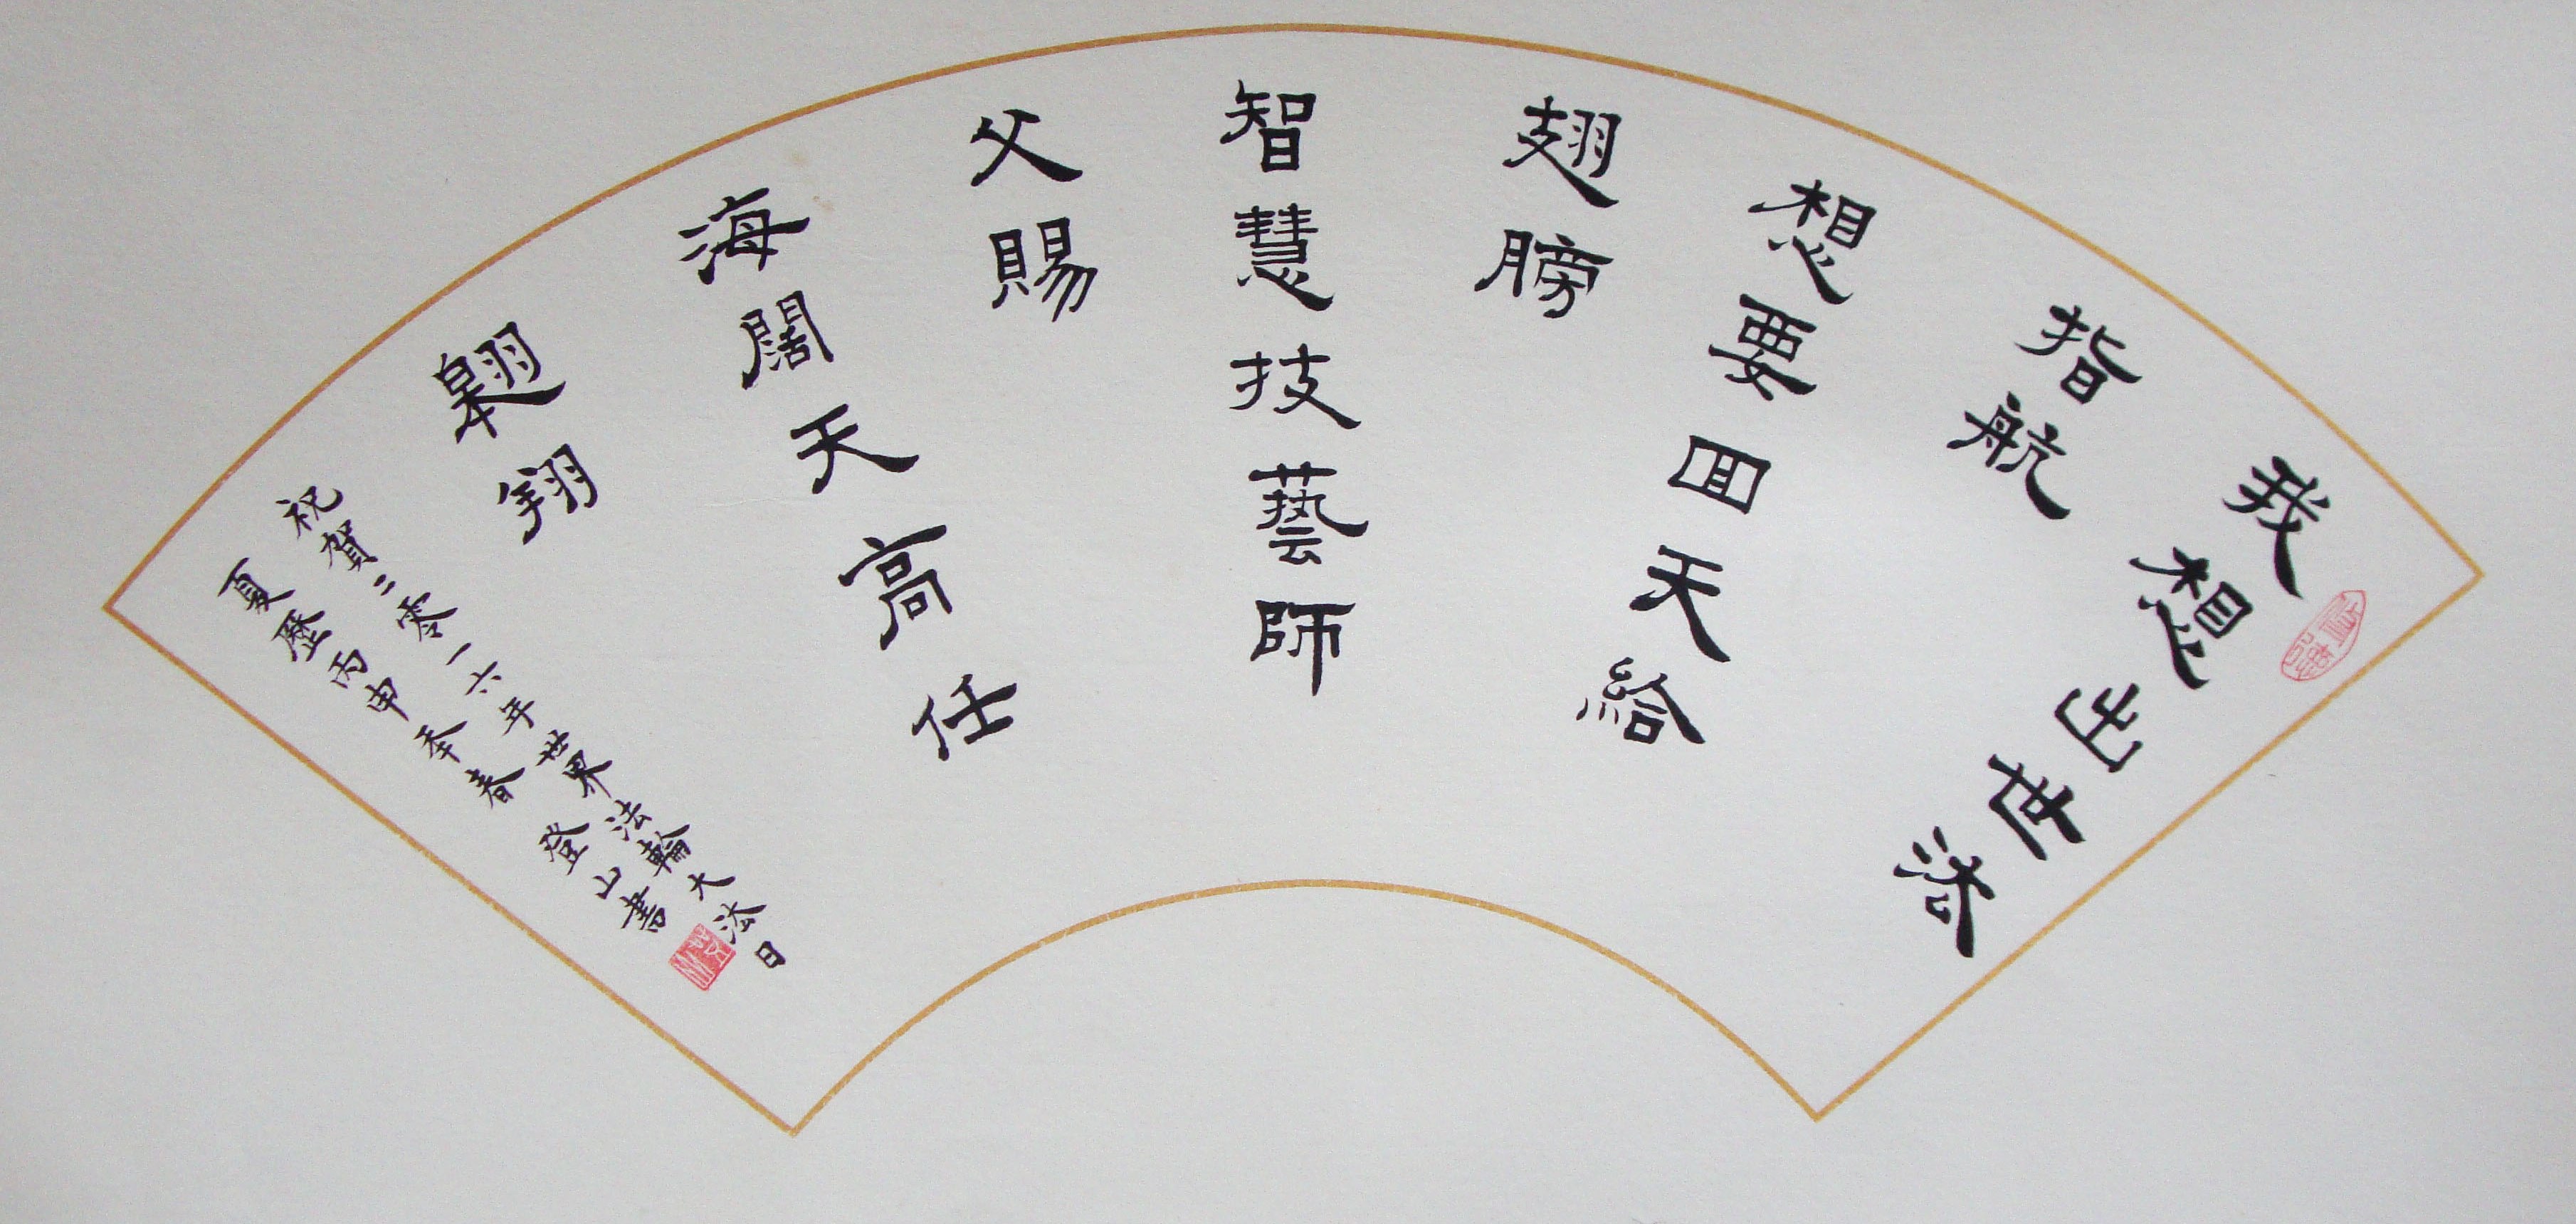 我想出世法
指航
想要回天給
翅膀
智慧技藝師
父賜
海闊天高任
翱翔
祝賀二零一六年世界法輪大法日
夏歷丙申季春 登山書